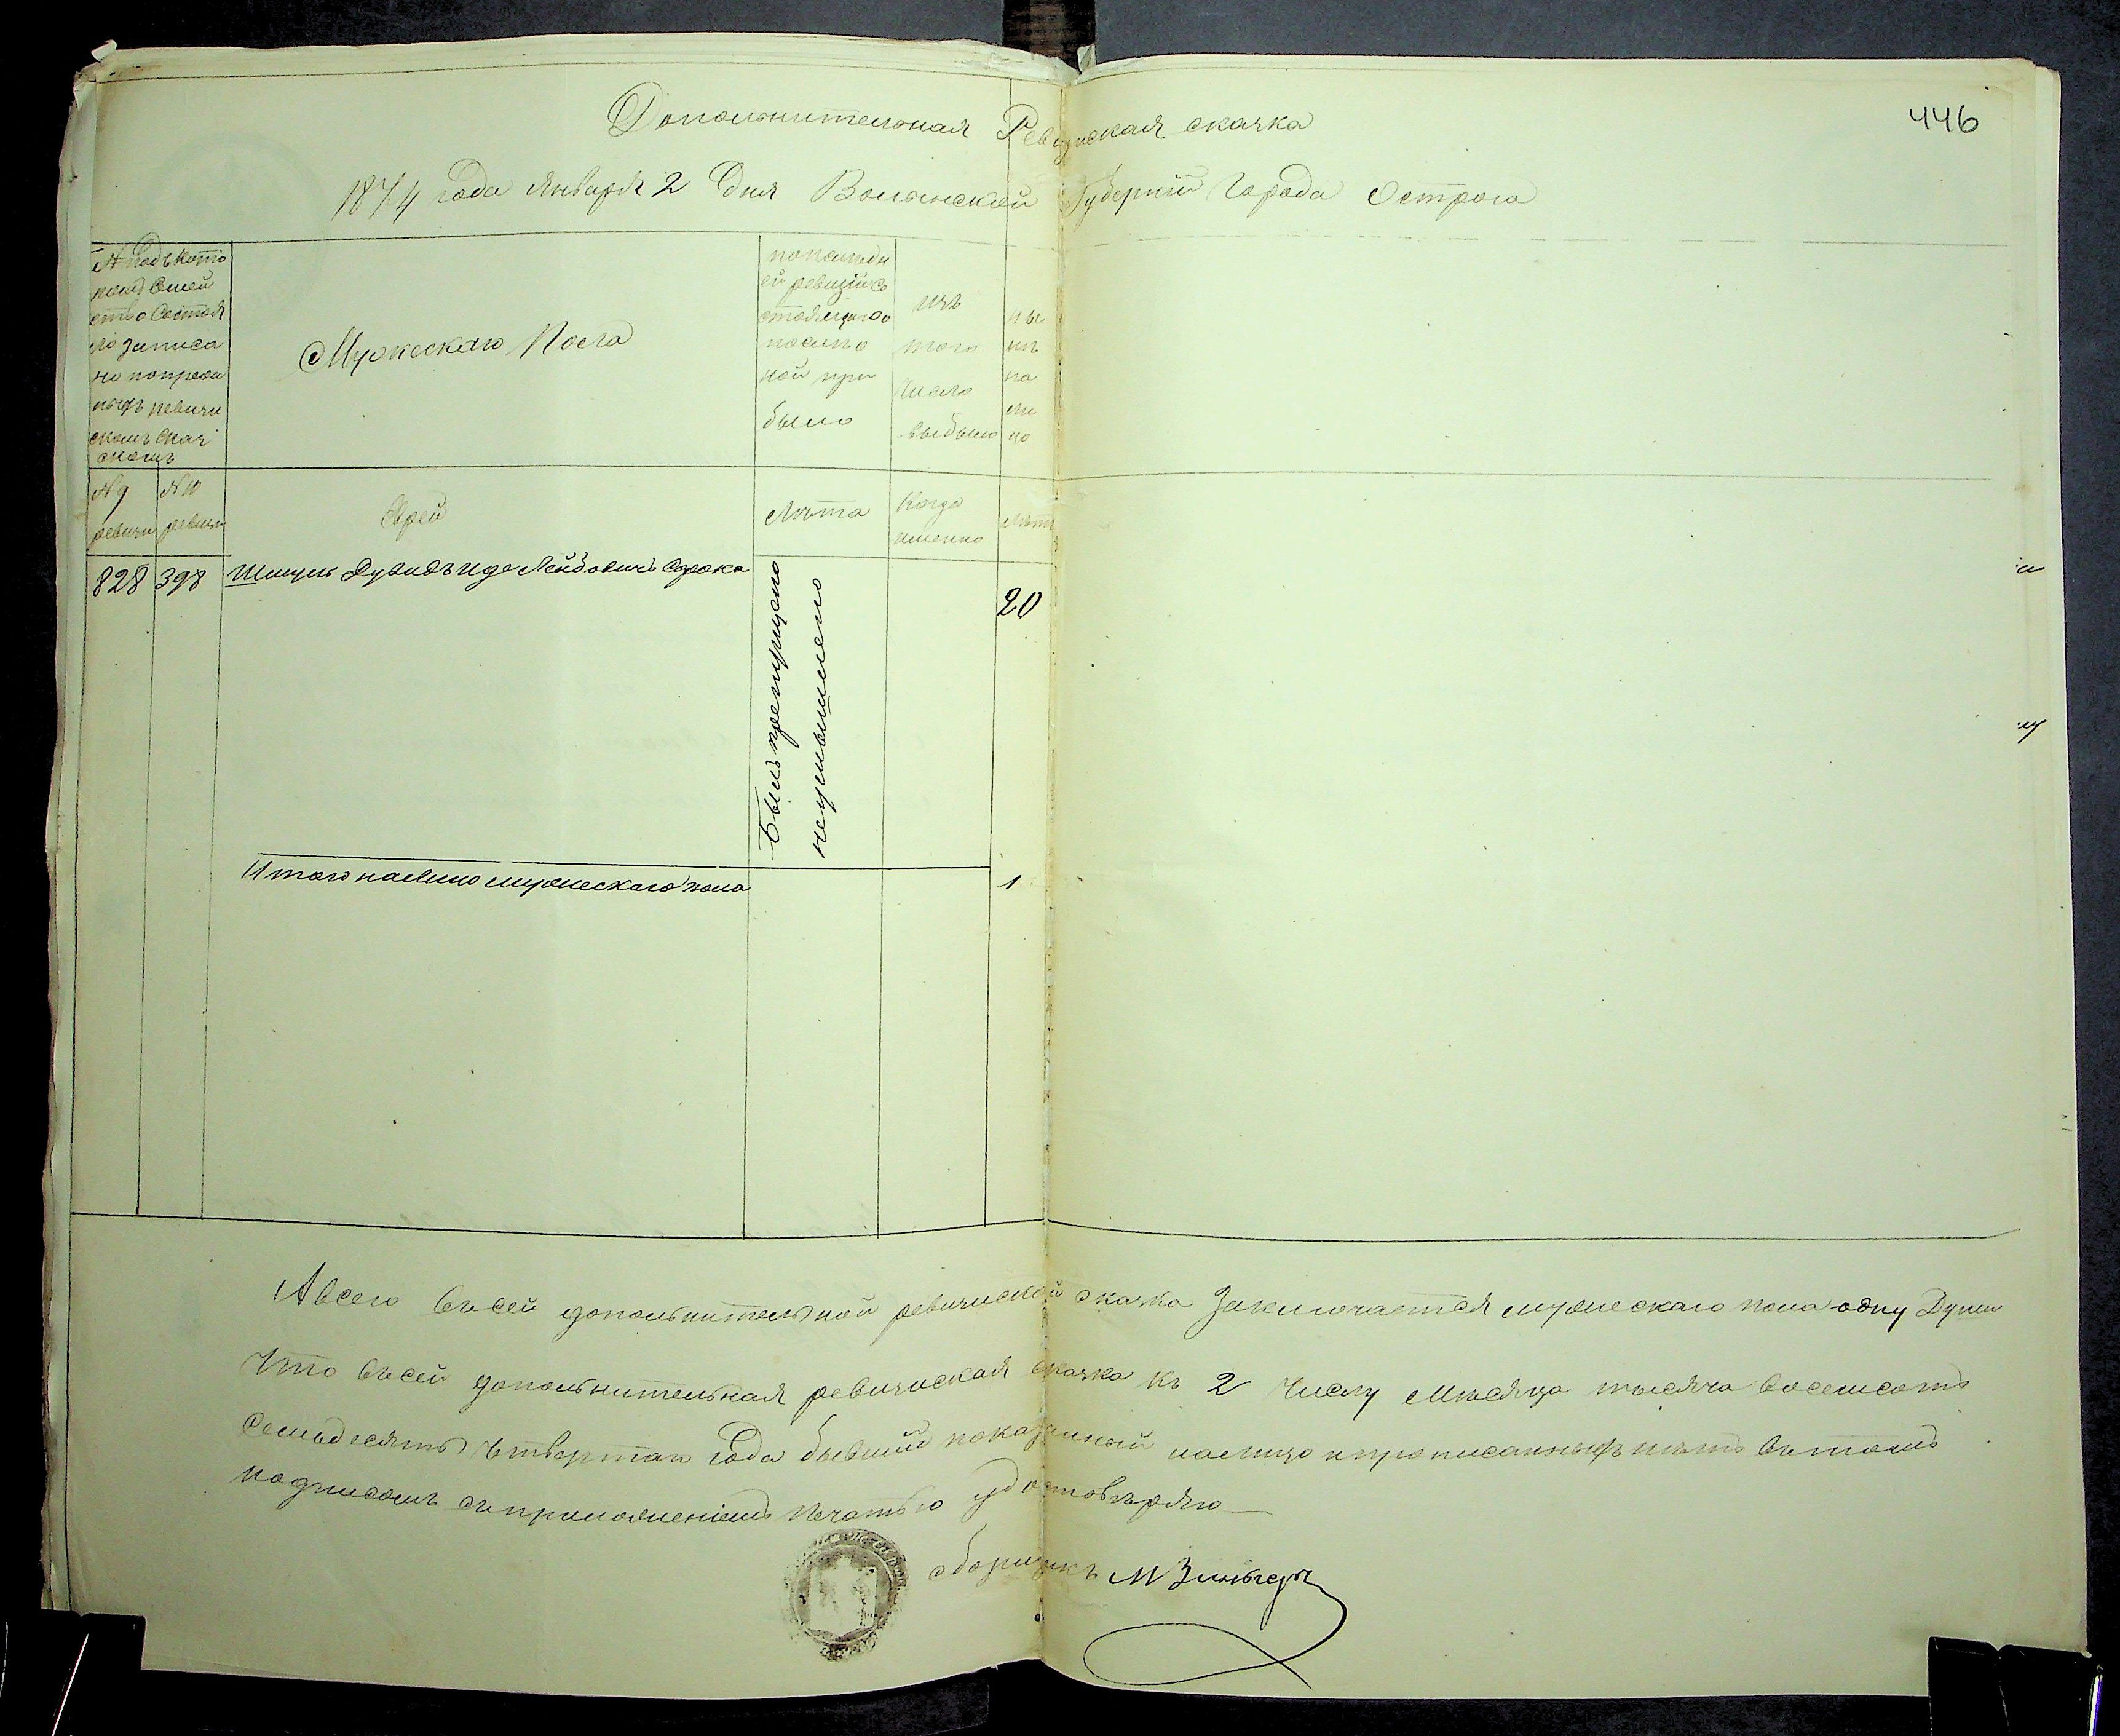 446
Дополнительная Ревизская сказка
1874 года Января 2 дня Волынской Губерніи Города Острога
№ подъ кото
рымъ Семей
ство Состоя
ло записа
но попреж
нимъ ревизи
скимъ Сказ
камъ
Мужескаго Пола
попослѣдн
ей ревизіи со
стоящаго и
после о
ной при
было
изъ
того
Число
выбыло
ны
нѣ
на
ли
цо
№ 9 ревизи
№ 10 ревизи
Еврей
Лѣта
Когда
именно
Лѣта
828 398 Шмуль Дувидъ Иде Лейбовичъ
Былъ препущено
неумышлено
20
Итого налицо мужескаго пола 1
А всего въ сей дополнительной ревизиской скаска Заключается мужескаго пола одну Души
Что въ сей дополнительная ревизиская сказка къ 2 Числу Мѣсяца тысяча восемсотъ
Семьдесятъ Четвертаго года бывший показанный налицо и прописанныхъ нѣтъ въ томъ
подписомъ съ приложеніемъ Печатью удостовѣряю
сборщикъ М Зингеръ